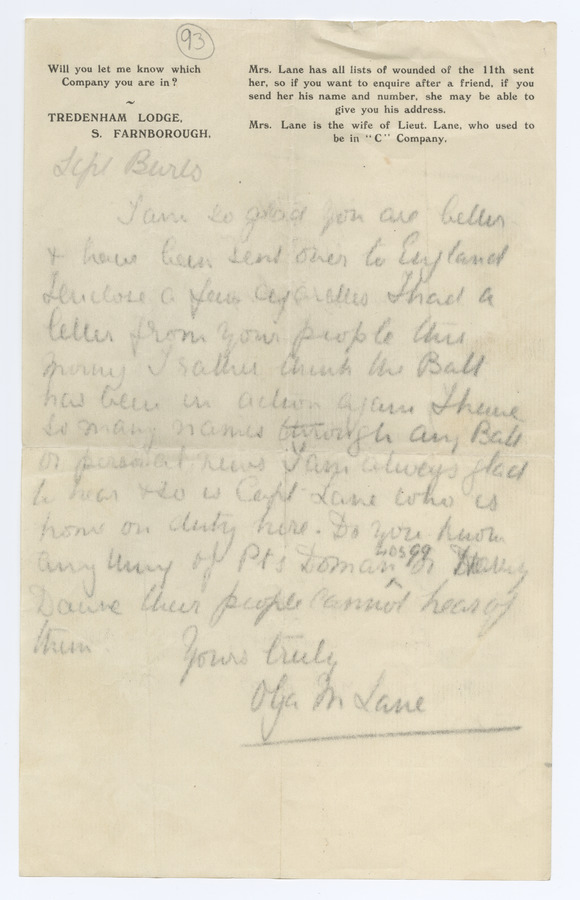 93
Will you let me know which
Company you are in?
~
TREDENHAM LODGE,
S. FARNBOROUGH.
Mrs. Lane has all lists of wounded of the 11th sent
her, so if you want to enquire after a friend, if you
send her his name and number, she may be able to
give you his address.
Mrs. Lane is the wife of Lieut. Lane, who used to
be in "C" Company.
I am so glad you are better
& have been sent over to England
I enclose a few cigarettes I had a
letter from your people this
morng I rather think the Batt
has been in action again I have
so many names through any Batt
or personal news I am always glad
to hear & so is Capt Lane who is
home on duty here. Do you know
any thing of Pts Doman or
their people cannot hear of
them
Yours truly
Olga M Lane